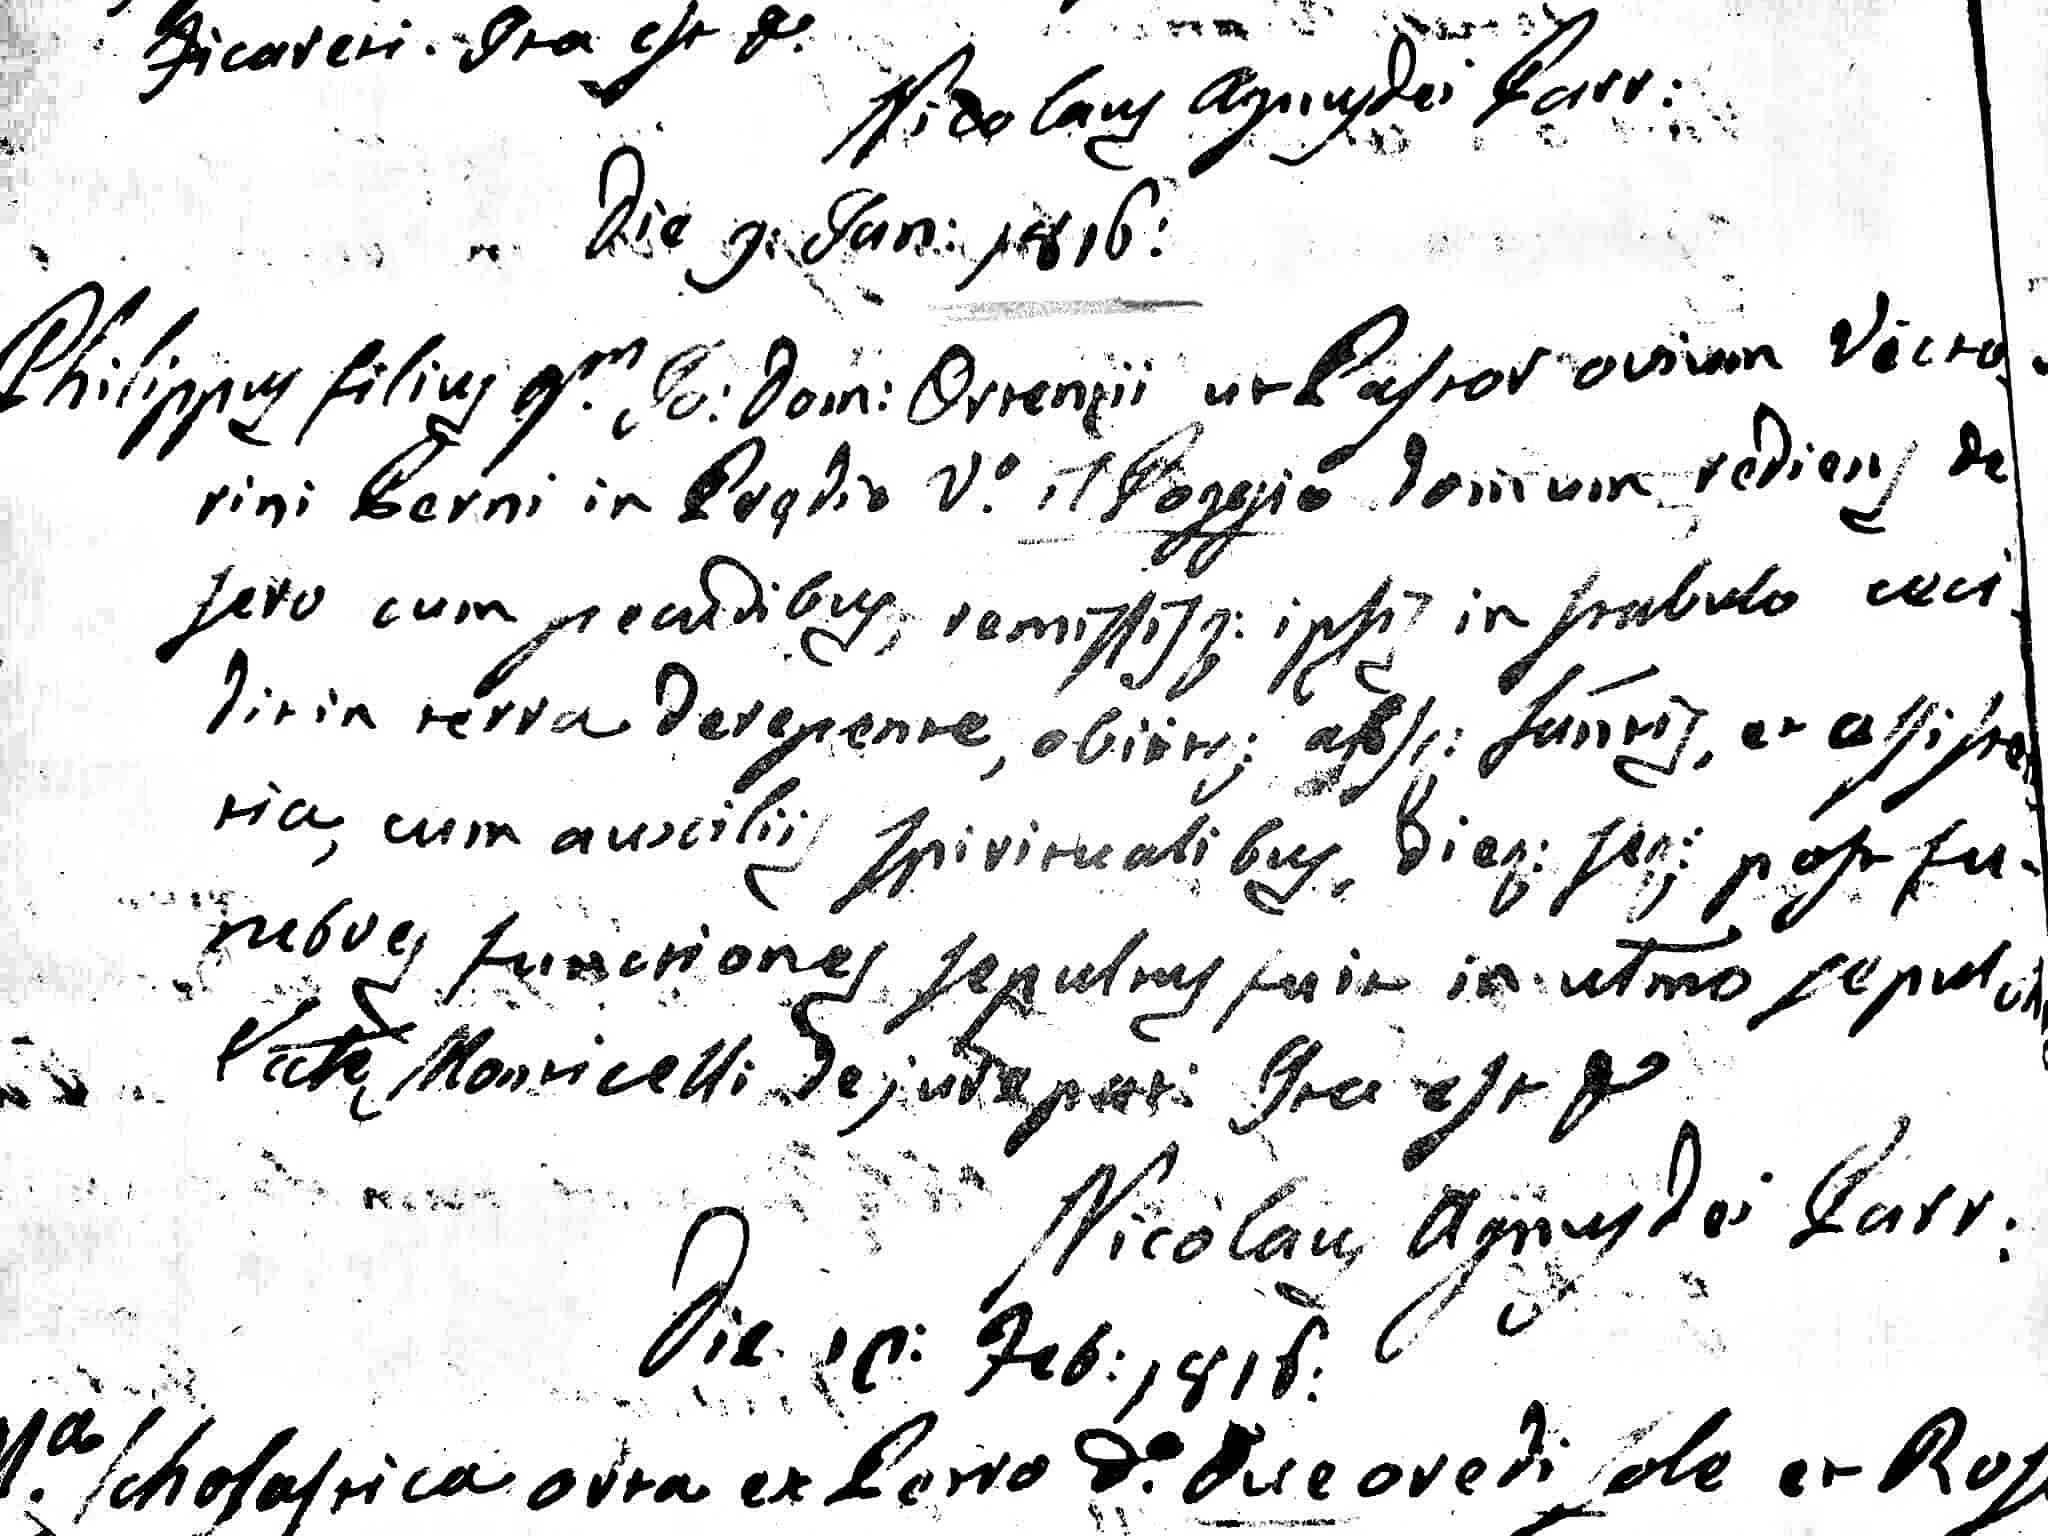 Ficareti. Ita est &.
Nicolaus Agnusdei Parr:
Die 9: Jan: 1816:
Philippus filius qm. Jo: Dom: Ortenzii ut Pastor ovium Victo-
rini Perni in Prędio V.o il Poggio domum rediens de
sero cum pecudibus, remissisq: ipsis in stabulo ceci-
dit in terra derepente, obiitq;
et assisten
tia, cum auxiliis spiritualibus, dieq: seq: post fu-
nebres functiones sepultus fuit in ultmo sepul
Monticelli Ita est &
Nicolaus Agnusdei Parr:
Die Feb: 1816:
M.a Scholastica orta ex Petro d.o Due ore di sole et Ros